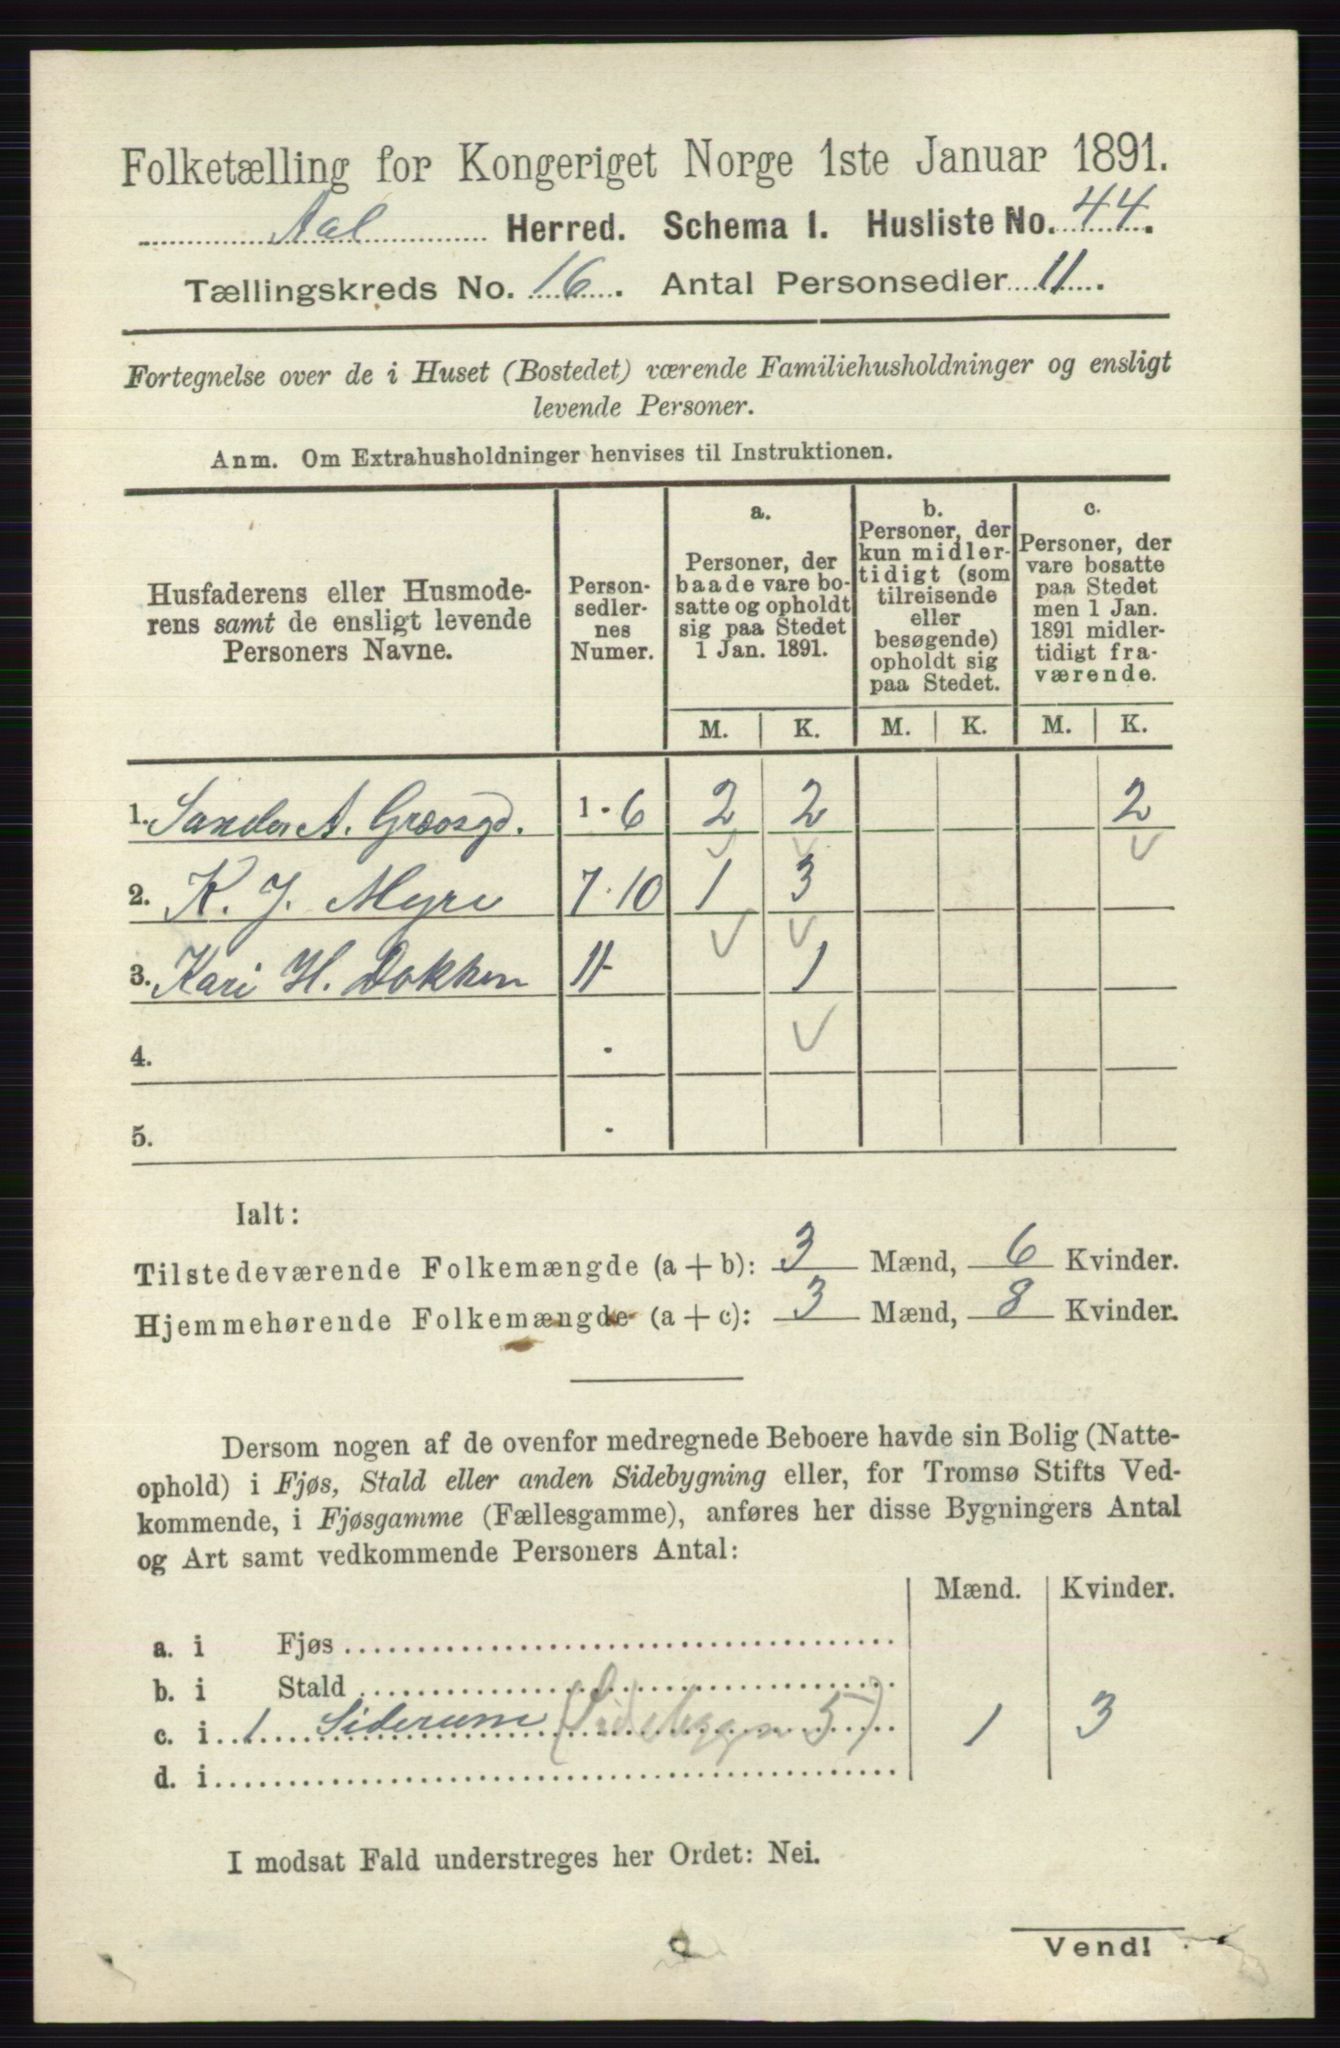 Folketælling for Kongeriget Norge 1ste Januar 1891.
Aal Herred. Schema I. Husliste No. 44.
Tællingskreds No. 16. Antal Personsedler 11.
Fortegnelse over de i Huset (Bostedet) værende Familiehusholdninger og ensligt
levende Personer.
Anm. Om Extrahusholdninger henvises til Instruktionen.
Husfaderens eller Husmode-
rens samt de ensligt levende
Personers Navne.
Person-
sedler-
nes
Numer.
a.
Personer, der
baade vare bo-
satte og opholdt
sig paa Stedet
1 Jan. 1891.
b.
Personer, der
kun midler-
tidigt (som
tilreisende
eller
besøgende)
opholdt sig
paa Stedet.
c.
Personer, der
vare bosatte
paa Stedet
men 1 Jan.
1891 midler-
tidigt fra-
værende.
M. K. M. K. M. K.
1. Sander A. 1 - 6 2 2 2
2. K. J. Myre 7 - 10 1 3
3. Kari H. Dokken 11 - 1
4. -
5. -
Ialt:
Tilstedeværende Folkemængde (a + b): 3 Mænd, 6 Kvinder.
Hjemmehørende Folkemængde (a + c): 3 Mænd, 8 Kvinder.
Dersom nogen af de ovenfor medregnede Beboere havde sin Bolig (Natte-
ophold) i Fjøs, Stald eller anden Sidebygning eller, for Tromsø Stifts Ved-
kommende, i Fjøsgamme (Fællesgamme), anføres her disse Bygningers Antal
og Art samt vedkommende Personers Antal:
Mænd. Kvinder.
a. i Fjøs
b. i Stald
c. i 1 Siderum 1 3
d. i
I modsat Fald understreges her Ordet: Nei.
Vend!